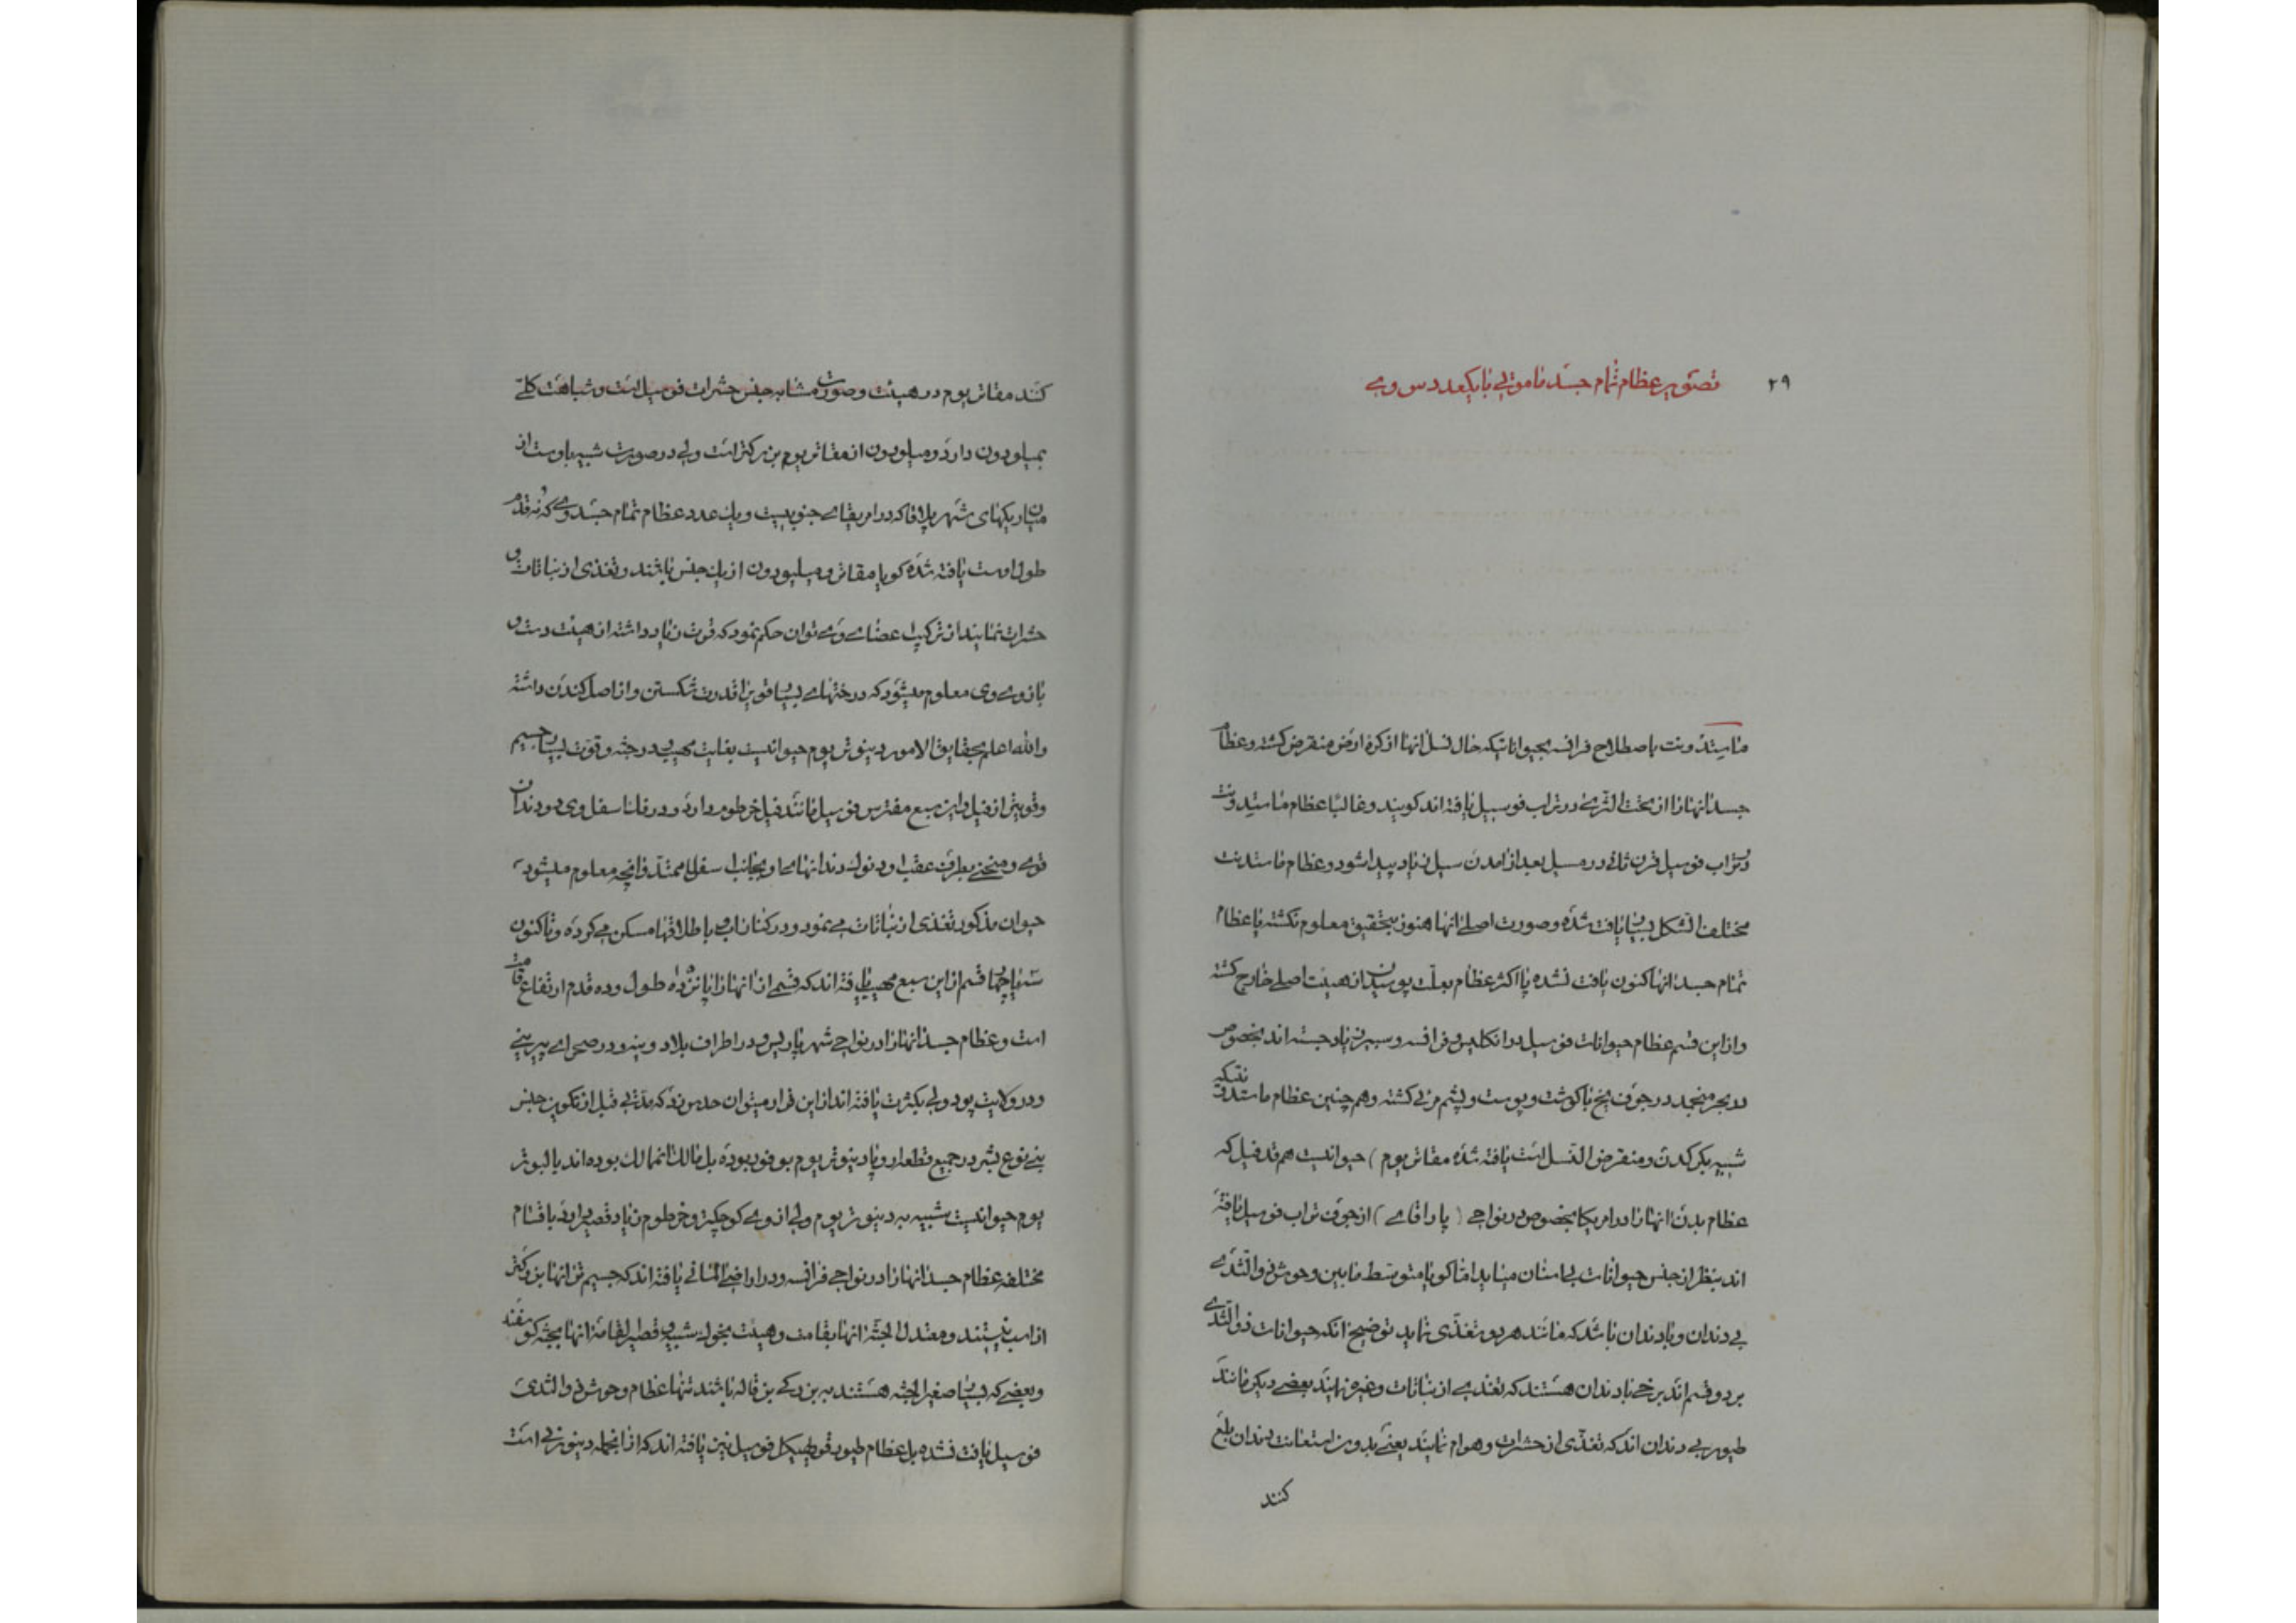 ۲۹
تصویر عظام تمام جسد ماموتی با یکعدد س وی
ماستدونت باصطلاح فرانسه بحیواناتیکه حال نسل انها از کره ارض منقرض کشته و عظام
جسد انها را از تحت الثری در تراب فوسیل یافته اند کویند و غالبا عظام ماستیدونت
در تراب فوسیل قرن ثانی در مسیل بعد از امدن سیل زیاد پیدا شود و عظام ماستدنت
مختلف الشکل بسیار یافت شده و صورت اصلی انها هنوز بتحقیق معلوم نکشته یا عظام
تمام جسد انها کنون یافت نشده یا اکثر عظام بعلت پوسیدن از هیئت اصلی خارج کشته
و از این قسم عظام حیوانات فوسیل در انکلیس و فرانسه و سیبر زیاد جسته اند بخصوص
در بحر منجمد در جوف یخ با کوشت و پوست و پشم مرئی کشته و هم چنین عظام ماستدونتیکه
شبیه بکرکدن و منقرض النسل است یافته شده مقاتریوم ) حیوانیست هم قد فیل که
عظام بدن انها را در امریکا بخصوص در نواحی ( پاراقای ) از جوف تراب فوسیل یافته
اند بنظر از جنس حیوانات بی اسنان میاید اما کویا متوسط مابین وحوش ذو الثدی
بی دندان و با دندان باشد که مانند هر دو تغذی نماید توضیح انکه حیوانات ذو الثدی
بر دو قسم اند برخی با دندان هستند که تغذی از نباتات و غیره نمایند بعضی دیکر مانند
طیور بی دندان اند که تغذی از حشرات و هوام نمایند یعنی بدون استعانت دندان بلع
کنند
کنند مقاتریوم در هیئت و صورت مشابه جنس حشرات فوسیل است و شباهت کلی
بمیلودون دارد و میلودون از مقاتریوم بزرکتر است ولی در صورت شبیه باوست از
میان ریکهای شهر پلاقا که در امریقای جنوبیست و یک عدد عظام تمام جسد وی که نه قدم
طول اوست یافته شده کویا مقاتر و میلیودون از یک جنس باشند و تغذی از نباتات و
حشرات نمایند از ترکیب اعضای وی توان حکم نمود که قوت زیاد داشته از هیئت دست و
بازوی وی معلوم میشود که درختهای بسیار قوی را قدرت شکستن و از اصل کندن داشته
والله اعلم بحقایق الامور دینوتریوم حیوانیست بغایت مهیب در جثه و قوت بسیار جسیم
و قوی تر از فیل و این سبع مفترس فوسیل مانند فیل خرطوم دارد و در فک اسفل وی دو دندان
قوی و منحنی بطرف عقب بود نوک دندانهای او بجانب اسفل ممتد و انچه معلوم میشود
حیوان مذکور تغذی از نباتات می نمود و در کنار اب یا باطلاقها مسکن می کرده و تاکنون
سه یا چهار قسم از این سبع مهیب یافته اند که قسمی از انها را پانزده طول و ده قدم ارتفاع قامت
است و عظام جسد انها را در نواحی شهر پاریس و در اطراف بلاد وینه و در صحرای پیرینی
و در ولایت پودولی بکثرت یافته اند از این قرار میتوان حدس زد که مدتی قبل از تکوین جنس
بنی نوع بشر در جمیع قطعه اروپا دینوتریوم بوفور بوده بل مالک انممالک بوده اند پالیوتر
یوم حیوانیست شبیه به دینوتریوم ولی از وی کوچکتر و خرطوم زیاد قصیر دارد باقسام
مختلفه عظام جسد انها را در نواحی فرانسه و در اراضی المانی یافته اند که جسیم تر انها بزرکتر
از اسب نیستند و معتدل الجثه انها بقامت و هیئت بخوک شبیه و قصیر القامه انها بجثه کوسفند
و بعضی که بسیار صغیر الجثه هستند به بزرکی بزغاله باشند تنها عظام وحوش ذو الثدی
فوسیل یافت نشده بل عظام طیور قوی هیکل فوسیل نیز یافته اند که از انجمله دینورنی است